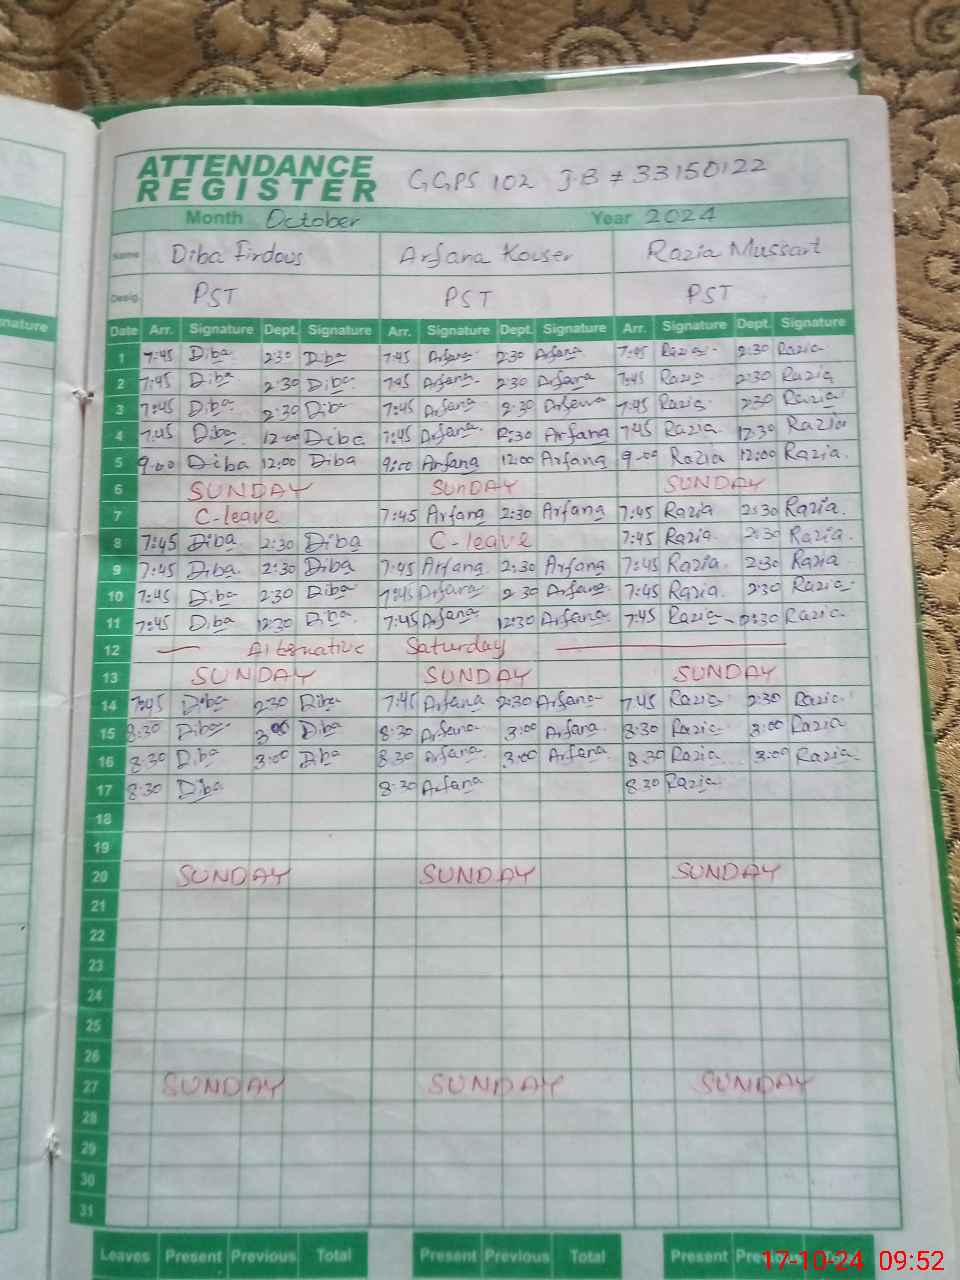 ATTENDANCE
REGISTER GGPS 102 J.B # 33150122
Month October Year 2024
Name Diba Firdous Arfana Kouser Razia Mussart
Desig. PST PST PST
nature
Date Arr. Signature Dept. Signature Arr. Signature Dept. Signature Arr. Signature Dept. Signature
1 7:45 Diba 2:30 Diba 7:45 Arfana 2:30 Arfana 7:45 Razia 2:30 Razia
2 7:45 Diba 2:30 Diba 7:45 Arfana 2:30 Arfana 7:45 Razia 2:30 Razia
3 7:45 Diba 2:30 Diba 7:45 Arfana 2:30 Arfana 7:45 Razia 2:30 Razia
4 7:45 Diba 12:00 Diba 7:45 Arfana 12:30 Arfana 7:45 Razia 12:30 Razia
5 9:00 Diba 12:00 Diba 9:00 Arfana 12:00 Arfana 9:00 Razia 12:00 Razia
6 SUNDAY SUnDAY SUNDAY
7 C-leave 7:45 Arfana 2:30 Arfana 7:45 Razia 2:30 Razia
8 7:45 Diba 2:30 Diba C-leave 7:45 Razia 2:30 Razia
9 7:45 Diba 2:30 Diba 7:45 Arfana 2:30 Arfana 7:45 Razia 2:30 Razia
10 7:45 Diba 2:30 Diba 7:45 Arfana 2:30 Arfana 7:45 Razia 2:30 Razia
11 7:45 Diba 12:30 Diba 7:45 Arfana 12:30 Arfana 7:45 Razia Razia
12 Alternative Saturday
13 SUNDAY SUNDAY SUNDAY
14 7:45 Diba 2:30 Diba 7:45 Arfana 2:30 Arfana 7:45 Razia 2:30 Razia
15 8:30 Diba 3:00 Diba 8:30 Arfana 3:00 Arfana 8:30 Razia 3:00 Razia
16 8:30 Diba 3:00 Diba 8:30 Arfana 3:00 Arfana 8:30 Razia 3:00 Razia
17 8:30 Diba 8:30 Arfana 8:30 Razia
18
19
20 SUNDAY SUNDAY SUNDAY
21
22
23
24
25
26
27 SUNDAY SUNDAY SUNDAY
28
29
30
31
Leaves Present Previous Total Present Previous Total Present
17-10-24 09:52